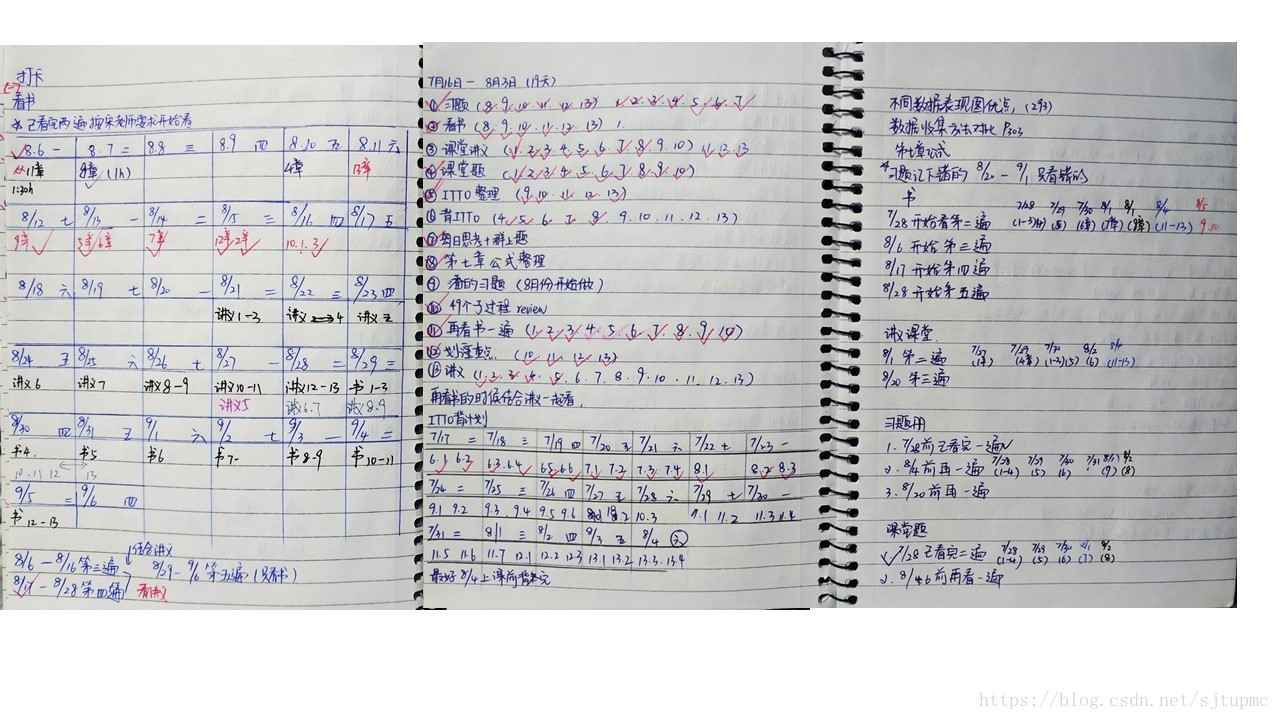 打卡
看书
※ 已看完两遍 按宋老师要求开始看
8.6 一 8.7 二 8.8 三 8.9 四 8.10 五 8.11 六
11章 8章 (1h) 4章 13章
1:30h
8/12 七 8/13 一 8/14 二 8/15 三 8/16 四 8/17 五
9章 5章/6章 7章 12章 2章 10.1.3
8/18 六 8/19 七 8/20 一 8/21 二 8/22 三 8/23 四
讲义1-3 讲义 4 讲义五
8/24 五 8/25 六 8/26 七 8/27 一 8/28 二 8/29 三
讲义6 讲义7 讲义8-9 讲义10-11 讲义12-13 书1-3
讲义5 讲义6.7 讲义8.9
8/30 四 8/31 五 9/1 六 9/2 七 9/3 一 9/4 二
书4. 书5 书6 书7- 书8-9 书10-11
10.11 12 13
9/5 三 9/6 四
书12-13
结合讲义
8/6 — 8/16 第三遍 8/29 - 9/6 第五遍 (只看书)
8/17 - 8/28 第四遍 看讲义
7月16日 — 8月3日 (19天)
① 习题 (8. 9. 10. 11. 12. 13) 1. 2. 3. 4. 5. 6. 7
② 看书 (8. 9. 10. 11. 12. 13) 1.
③ 课堂讲义 (1. 2. 3. 4. 5. 6. 7. 8. 9. 10) 11. 12. 13
④ 课堂题 (1. 2. 3. 4. 5. 6. 7. 8. 9. 10)
⑤ ITTO 整理 (9. 10. 11. 12. 13)
⑥ 背ITTO (4. 5. 6. 7. 8. 9. 10. 11. 12. 13)
⑦ 每日思考+群上题
⑧ 第七章公式整理
⑨ 的习题 (8月份开始做)
⑩ 49个子过程 review
⑪ 再看书一遍 (1. 2. 3. 4. 5. 6. 7. 8. 9. 10)
⑫ 划重点. (10. 11. 12. 13)
⑬ 讲义 (1. 2. 3. 4. 5. 6. 7. 8. 9. 10. 11. 12. 13)
再看书的时候结合讲义一起看.
ITTO背计划
7/17 二 7/18 三 7/19 四 7/20 五 7/21 六 7/22 七 7/23 一
6.1 6.2 6.3. 6.4 6.5 6.6 7.1 7.2 7.3. 7.4 8.1 8.2 8.3
7/24 二 7/25 三 7/26 四 7/27 五 7/28 六 7/29 七 7/30 一
9.1 9.2 9.3 9.4 9.5 9.6 10.3 11.2 11.3 11.4
7/31 二 8/1 三 8/2 四 8/3 五 8/4 六
11.5 11.6 11.7 12.1 12.2 12.3 13.1 13.2 13.3. 13.4
最好 8/4 上课前背完
不同数据表现图优点, (293)
数据收集方法对比 P303
第七章公式
习题记下错的 8/20 - 9/1 只看错的
书
7/28 7/29 7/30 8/1 8/1 8/4 8/5
7/28 开始看第二遍 (1-3) (5) (6章) (7章) (8章) (11-13) 9.10
8/6 开始 第三遍
8/17 开始第四遍
8/28 开始第五遍
讲义课堂
8/1 第二遍 7/27 7/29 7/30 8/2 8/4
(4章) (1-3)(5) (6) (11-13)
8/20 第三遍
习题册
1. 7/28前已看完一遍
2. 8/4前再一遍 7/28 7/29 7/30 7/31 8/1 8/2
(1-4) (5) (6) (9) (8)
3. 8/20前再一遍
课堂题
7/28 已看完二遍 7/28 7/29 7/30 8/1 8/2
(1-4) (5) (6) (7) (8)
2. 8/4 前再看一遍
https://blog.csdn.net/sjtupmc